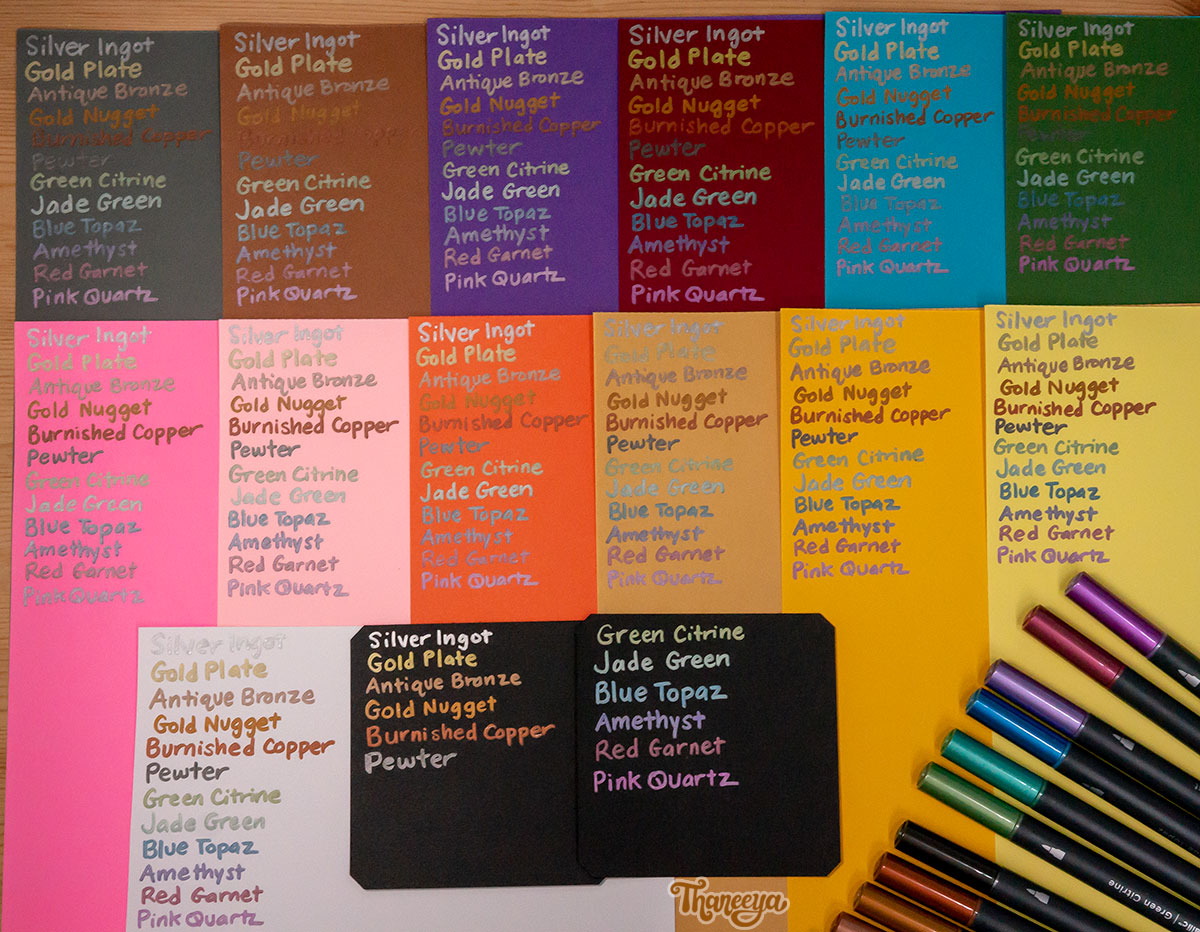 Silver Ingot
Gold Plate
Antique Bronze
Gold Nugget
Burnished Copper
Pewter
Green Citrine
Jade Green
Blue Topaz
Amethyst
Red Garnet
Pink Quartz
Silver Ingot
Gold Plate
Antique Bronze
Gold Nugget
Burnished Copper
Pewter
Green Citrine
Jade Green
Blue Topaz
Amethyst
Red Garnet
Pink Quartz
Silver Ingot
Gold Plate
Antique Bronze
Gold Nugget
Burnished Copper
Pewter
Green Citrine
Jade Green
Blue Topaz
Amethyst
Red Garnet
Pink Quartz
Silver Ingot
Gold Plate
Antique Bronze
Gold Nugget
Burnished Copper
Pewter
Green Citrine
Jade Green
Blue Topaz
Amethyst
Red Garnet
Pink Quartz
Silver Ingot
Gold Plate
Antique Bronze
Gold Nugget
Burnished Copper
Pewter
Green Citrine
Jade Green
Blue Topaz
Amethyst
Red Garnet
Pink Quartz
Silver Ingot
Gold Plate
Antique Bronze
Gold Nugget
Burnished Copper
Pewter
Green Citrine
Jade Green
Blue Topaz
Amethyst
Red Garnet
Pink Quartz
Silver Ingot
Gold Plate
Antique Bronze
Gold Nugget
Burnished Copper
Pewter
Green Citrine
Jade Green
Blue Topaz
Amethyst
Red Garnet
Pink Quartz
Silver Ingot
Gold Plate
Antique Bronze
Gold Nugget
Burnished Copper
Pewter
Green Citrine
Jade Green
Blue Topaz
Amethyst
Red Garnet
Pink Quartz
Silver Ingot
Gold Plate
Antique Bronze
Gold Nugget
Burnished Copper
Pewter
Green Citrine
Jade Green
Blue Topaz
Amethyst
Red Garnet
Pink Quartz
Silver Ingot
Gold Plate
Antique Bronze
Gold Nugget
Burnished Copper
Pewter
Green Citrine
Jade Green
Blue Topaz
Amethyst
Red Garnet
Pink Quartz
Silver Ingot
Gold Plate
Antique Bronze
Gold Nugget
Burnished Copper
Pewter
Green Citrine
Jade Green
Blue Topaz
Amethyst
Red Garnet
Pink Quartz
Silver Ingot
Gold Plate
Antique Bronze
Gold Nugget
Burnished Copper
Pewter
Green Citrine
Jade Green
Blue Topaz
Amethyst
Red Garnet
Pink Quartz
Silver Ingot
Gold Plate
Antique Bronze
Gold Nugget
Burnished Copper
Pewter
Green Citrine
Jade Green
Blue Topaz
Amethyst
Red Garnet
Pink Quartz
Silver Ingot
Gold Plate
Antique Bronze
Gold Nugget
Burnished Copper
Pewter
Green Citrine
Jade Green
Blue Topaz
Amethyst
Red Garnet
Pink Quartz
| Green Citrine
Thaneeya